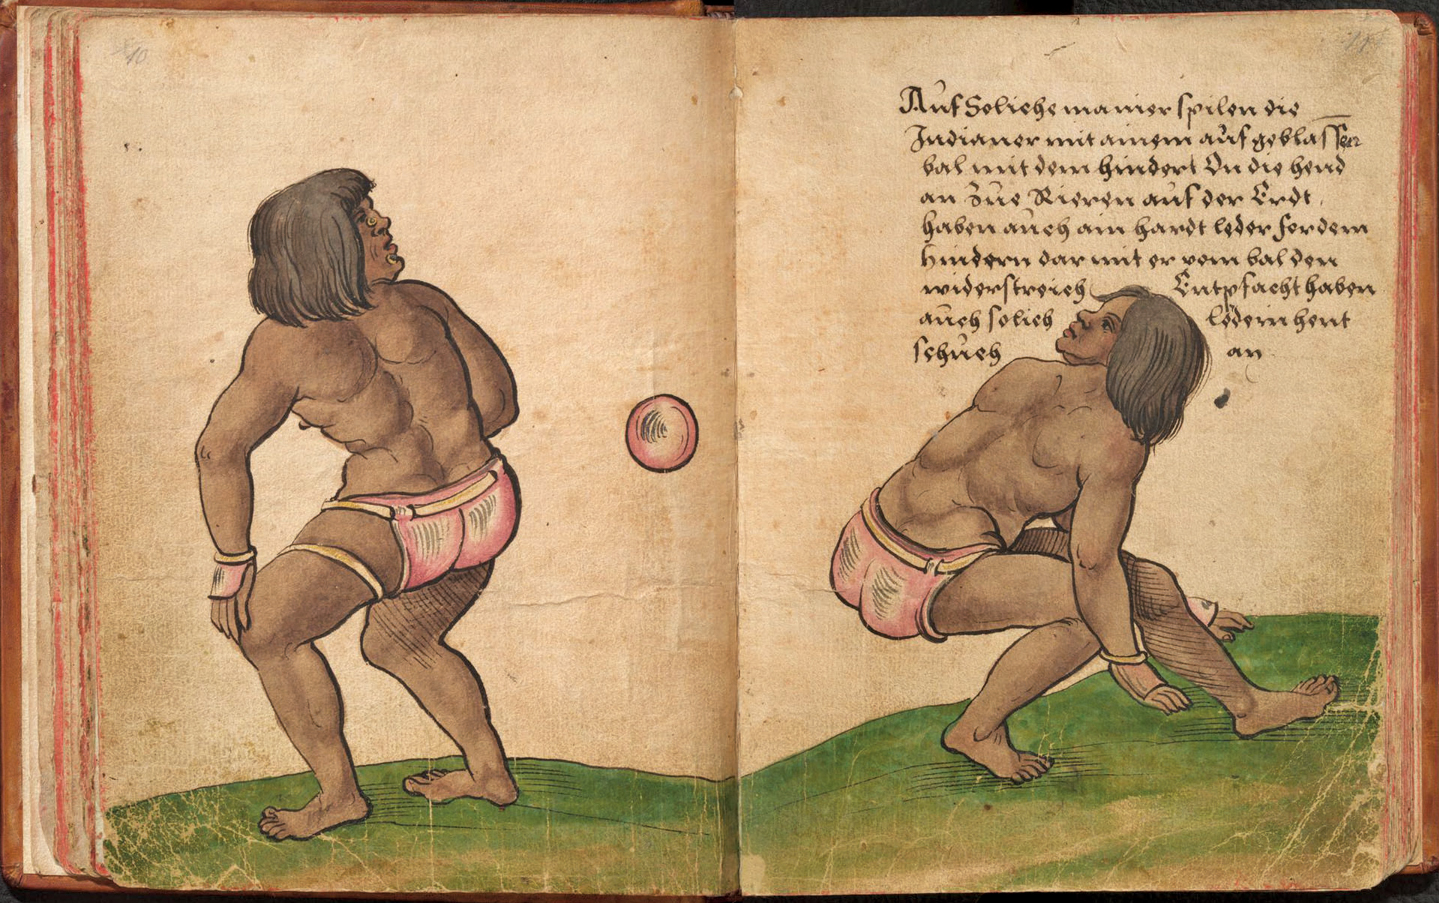 10
Auf Soliche manier spilen die
Indianer mit ainem aufgeblassen
bal mit dem hindert On die hend
an Zue Rieren auf der Erdt
haben auch ain hardt leder for dem
hindern dar mit er vom bal den
widerstreich Entpfacht haben
auch solich ledern hent
schuch an